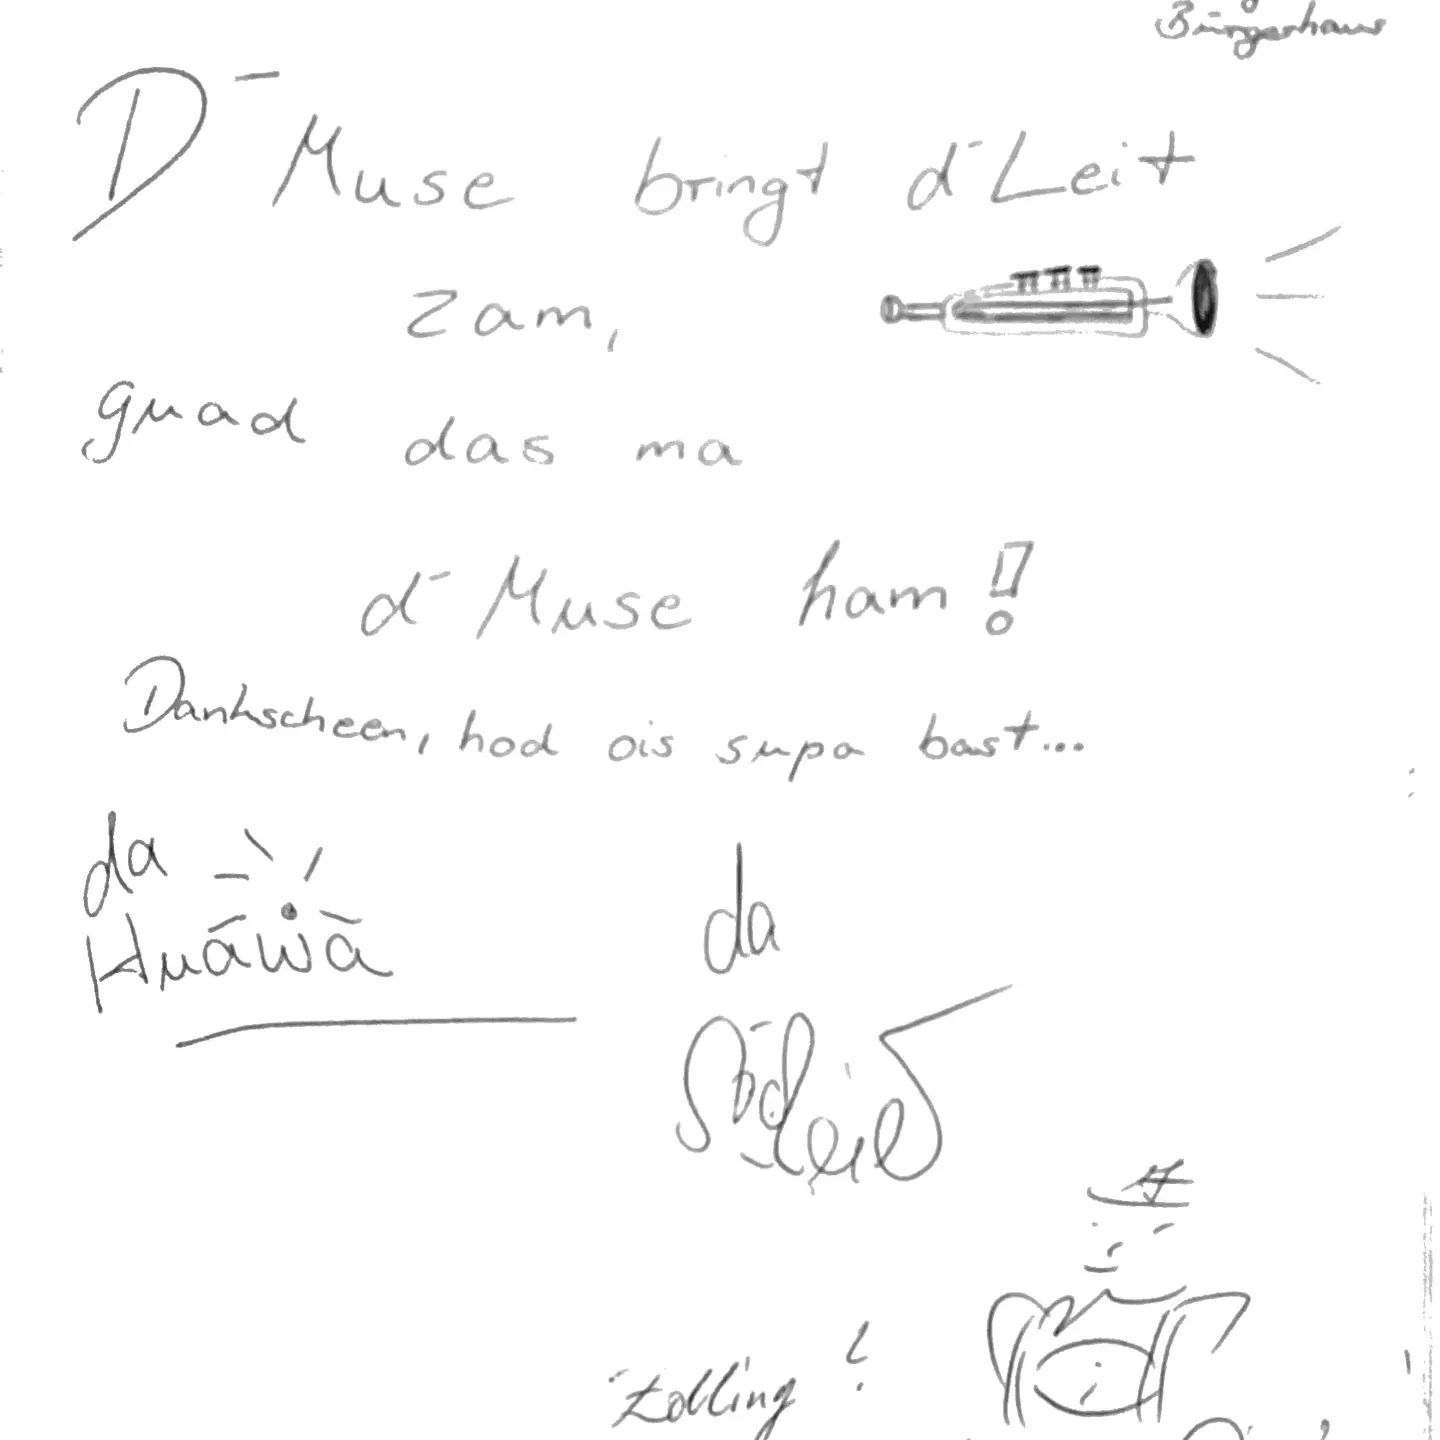 Bürgerhaus
D' Muse bringt d'Leit
zam,
guad das ma
d' Muse ham!
Dankscheen, hod ois supa bast...
da
Huáwà
da
Zolling